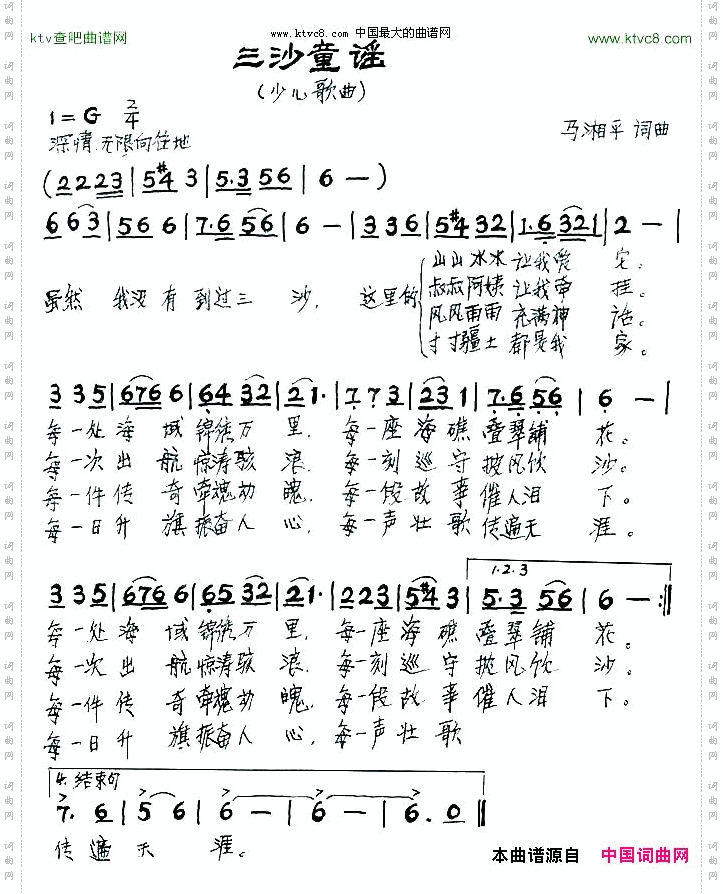 www.ktvc8.com 中国最大的曲谱网
ktv查吧曲谱网
www.ktvc8.com
三沙童谣
(少儿歌曲)
1=G 2/4
马湘平 词曲
深情 无限向往地
(2 2 2 3 | 5 #4 3 | 5. 3 5 6 | 6 — )
6 6 3 | 5 6 6 | 7. 6 5 6 | 6 — | 3 3 6 | 5 #4 3 2 | 1. 6 3 2 1 | 2 — |
虽然 我没有到过三沙, 这里的
山山水水 让我爱它。
叔叔阿姨 让我牵挂。
风风雨雨 充满神话。
寸寸疆土 都是我家。
3 3 5 | 6 7 6 6 | 6 4 3 2 | 2 1. | 7 7 3 | 2 3 1 | 7. 6 5 6 5 | 6 — |
每一处海域锦绣万里, 每一座海礁叠翠铺花。
每一次出航惊涛骇浪, 每一刻巡守披风饮沙。
每一件传奇牵魂动魄, 每一段故事催人泪下。
每一日升旗振奋人心, 每一声壮歌传遍天涯。
1. 2. 3
3 3 5 | 6 7 6 6 | 6 5 3 2 | 2 1. | 2 2 3 | 5 #4 3 | 5. 3 5 6 | 6 — :‖
每一处海域锦绣万里, 每一座海礁叠翠铺花。
每一次出航惊涛骇浪, 每一刻巡守披风饮沙。
每一件传奇牵魂动魄, 每一段故事催人泪下。
每一日升旗振奋人心, 每一声壮歌
4. 结束句
7. 6 | 5 6 | 6 — | 6 — | 6. 0 ‖
传遍天涯。
本曲谱源自 中国词曲网
词曲网